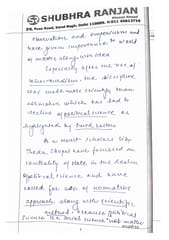 SHUBHRA RANJAN
observations and empericism and
have given importance to world
of matter along with idea
Especially after the rise of
behaviouralism, the discipline
was made more scientific than
normative which has led to
decline of political science, as
highlighted by David Easton
As a result scholars like
Theda Skopal have focussed on
centrality of state in the realm
of political science and have
called for use of normative
approach along with scientific
method, because political
science is a social science